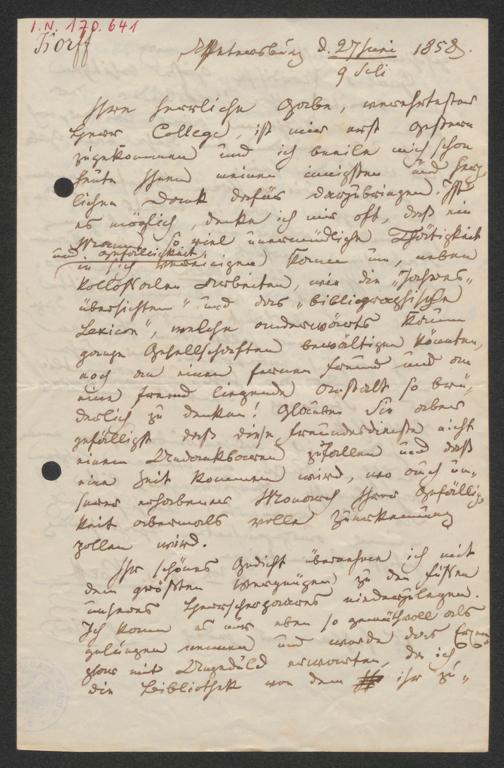 I.N. 170.641
Korff
St Petersburg d. 27 Juni 1858.
9 Juli
Ihre herrliche Gabe, verehrtester
Herr College, ist mir erst gestern
zugekommen und ich beeile mich schon
heute Ihnen meinen innigsten und herz-
lichen Dank dafür darzubringen. Ist
es möglich, denke ich mir oft, daß ein
Mann so viel unermüdliche Thätigkeit
und Gefälligkeit
in sich vereinigen könne um, neben
kollossalen Arbeiten, wie die "Jahres-
übersichten" und das "bibliographische
Lexicon", welche anderwärts kaum
ganze Gesellschaften bewältigen könnten,
noch an einen fernen Freund und an
eine fremd liegende Anstalt so brü-
derlich zu denken! Glauben Sie aber
gefälligst daß diese Freundesdienste nicht
einem Undankbaren zufallen und daß
eine Zeit kommen wird, wo auch un-
serer erhabener Monarch Ihrer Gefällig-
keit abermals volle Anerkennung
zollen wird.
Ihr schönes Gedicht übernehme ich mit
dem größten Vergnügen zu den Füßen
unseres Herrscherpaares niederzulegen.
Ich kann es nur eben so gemüthvoll als
gelungen nennen und werde das Exem-
plar mit Ungeduld erwarten, da ich
die Bibliothek von dem ihr zu-